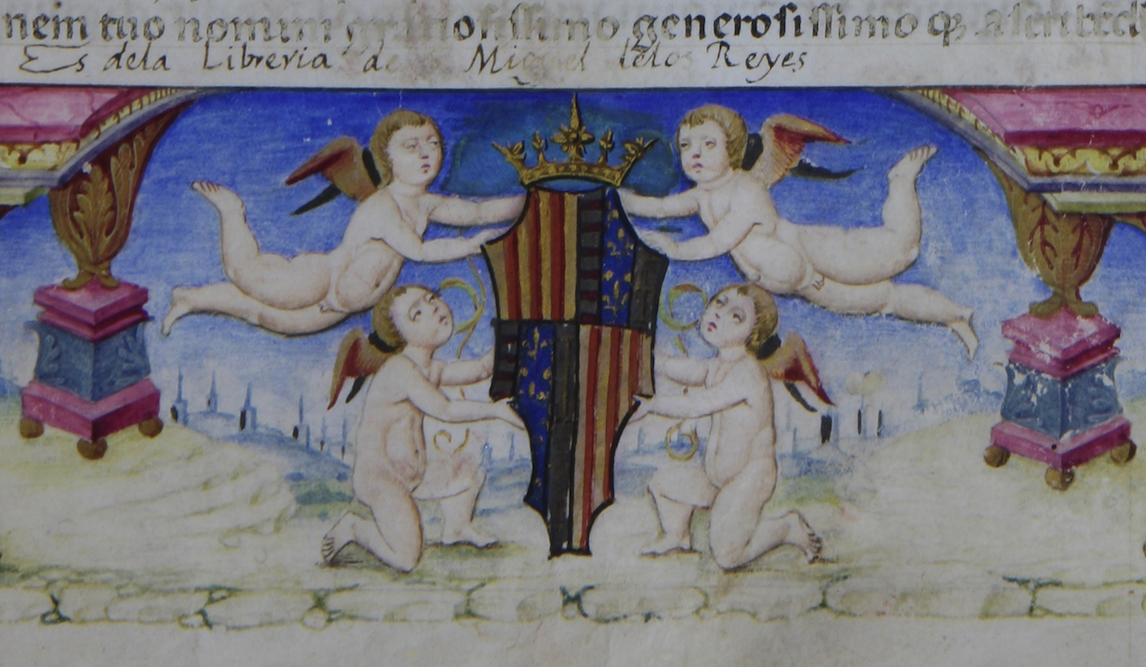 nem tuo nomini gratiosissimo generosissimo qȝ
Es dela Libreria de Miguel delos Reyes